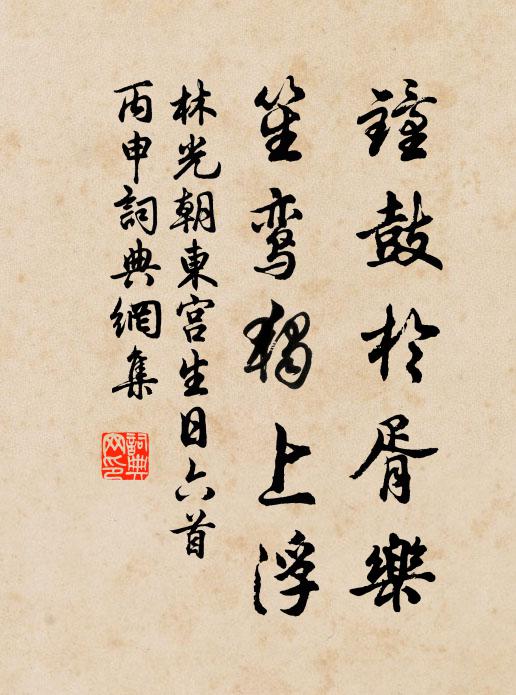 鐘鼓於胥樂
笙鸾獨上浮
林光朝東宮生日六首
丙申詞典網集
詞典网印